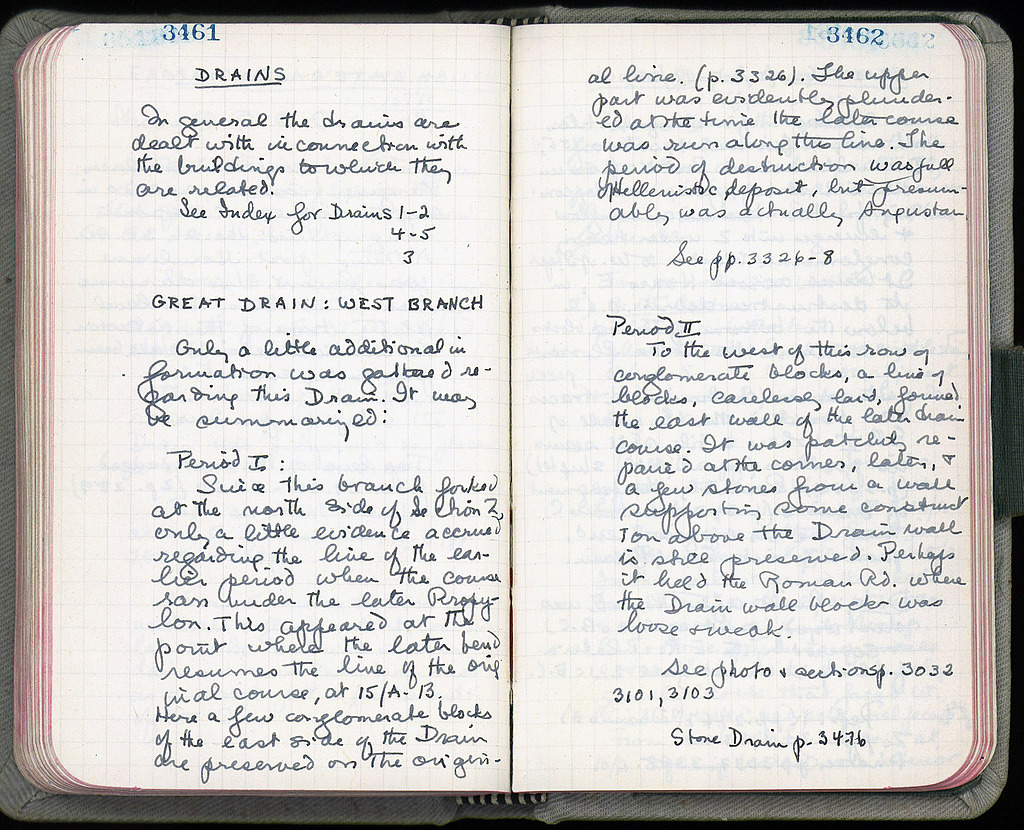 3461
DRAINS
In general the drains are
dealt with in connection with
the buildings to which they
are related.
See Index for Drains 1-2
4-5
3
GREAT DRAIN: WEST BRANCH
Only a little additional in
formation was gathered re-
garding this Drain. It may
be summarized:
Period I:
Since this branch forked
at the north side of Section Z,
only a little evidence accrued
regarding the line of the ear-
lier period when the course
ran under the later Propy-
lon. This appeared at the
point where the later bend
resumes the line of the orig
inal course, at 15/A-13.
Here a few conglomerate blocks
of the east side of the Drain
are preserved on the origin-
3462
al line. (p. 3326). The upper
part was evidently plunder-
ed at the time the later course
was run along this line. The
period of destruction was full
Hellenistic, deposit, but presum-
ably was actually Augustan.
See pp. 3326-8
Period II
To the west of this row of
conglomerate blocks, a line of
blocks, carelessly laid, formed
the east wall of the later drain
course. It was patchily re-
paired at the corner, later, &
a few stones from a wall
supporting some construct
ion above the Drain wall
is still preserved. Perhaps
it held the Roman Rd. where
the Drain wall blocks was
loose & weak.
See photo & sections p. 3032
3101, 3103
Stone Drain p. 3476